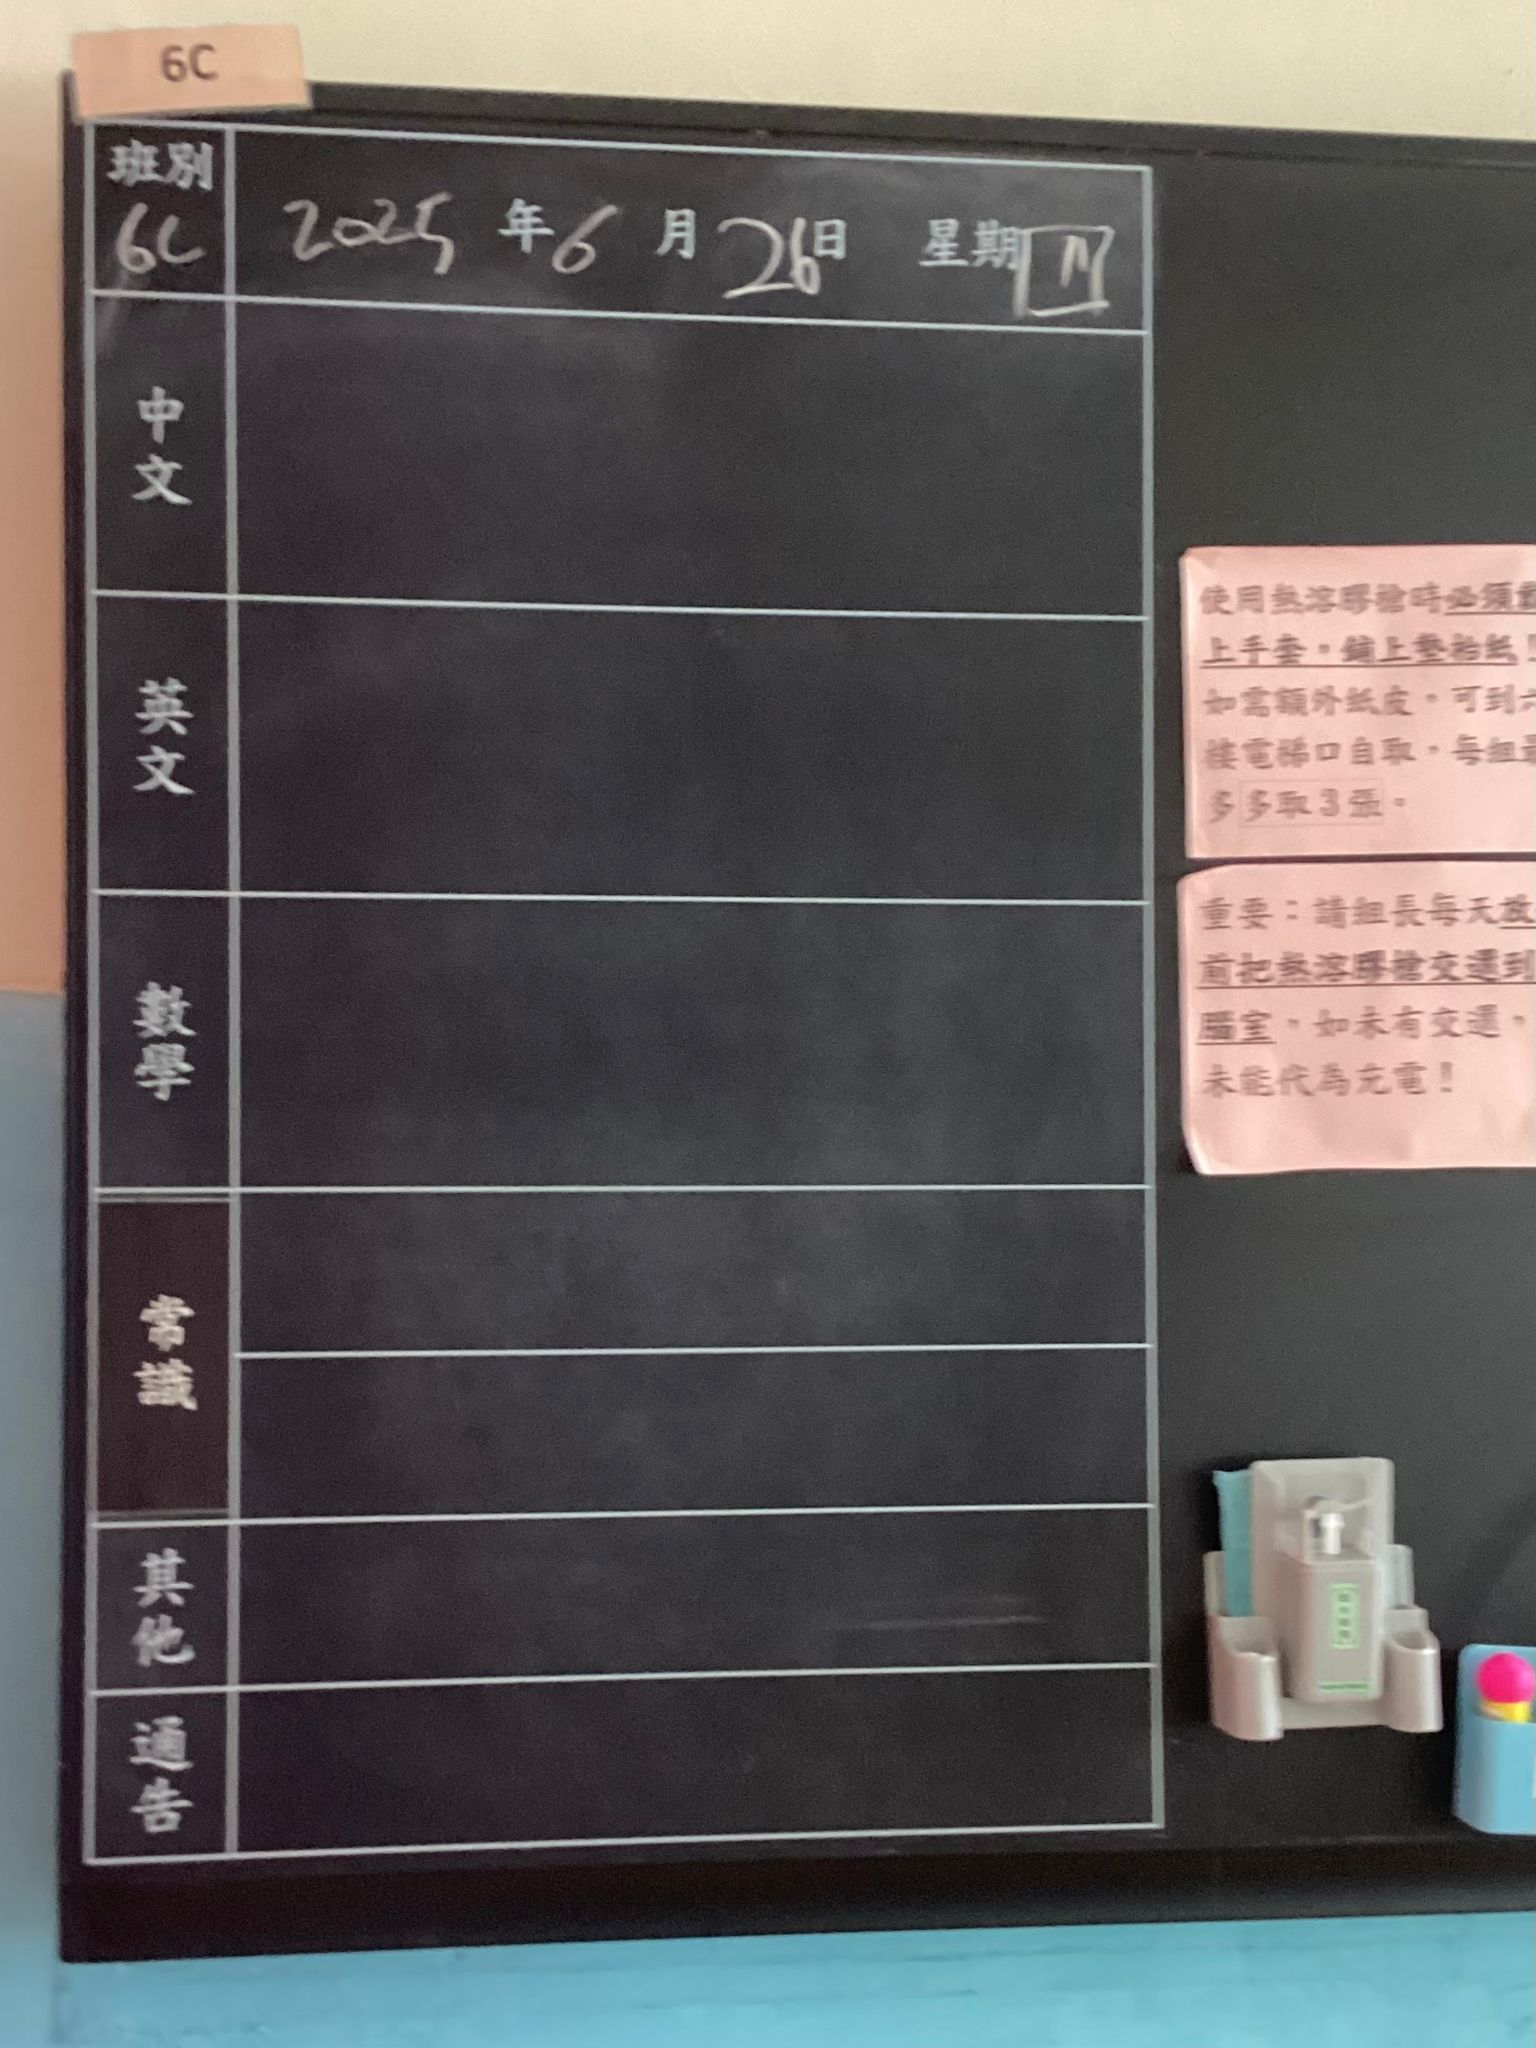 6C
班別
6C
2025年6月26日 星期四
中文
英文
數學
常識
其他
通告
使用熱溶膠槍時必須
上手套,鋪上墊枱紙!
如需額外紙皮,可到
樓電梯口自取,每組最
多多取3張。
重要:請組長每天放
前把熱溶膠槍交還到
腦室,如未有交還,
未能代為充電!